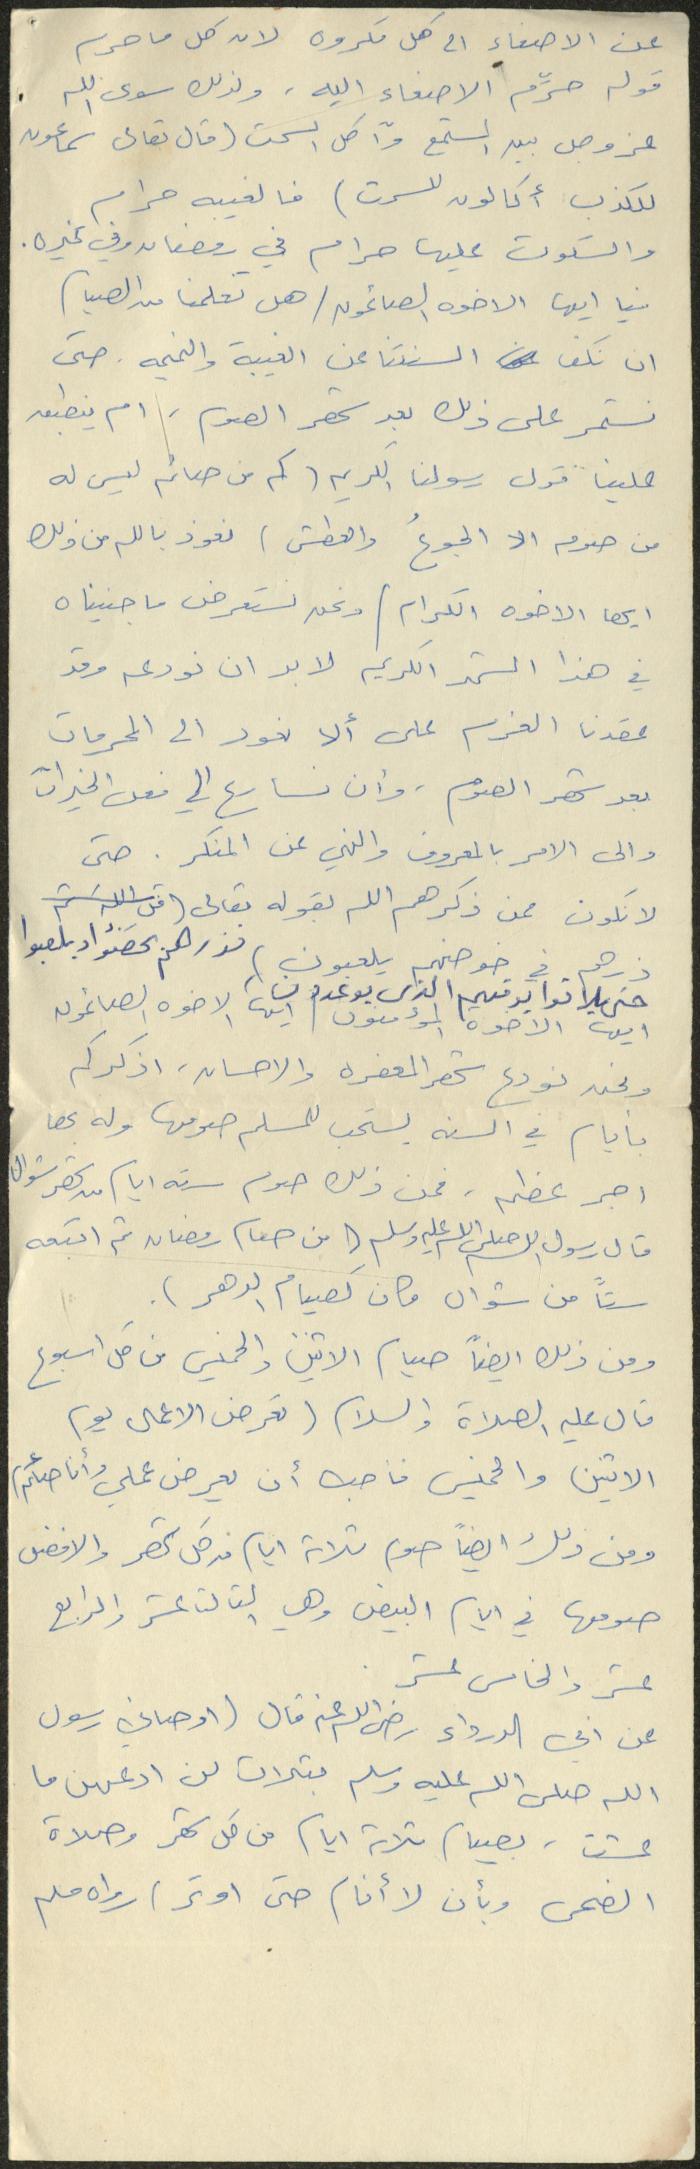 عن الاصغاء الى كل مكروه لان كل ما حرم
قوله حرّم الاصغاء اليه، ولذلك سوى الله
عز وجل بين المستمع وآكل السحت (قال تعالى سماعون
للكذب أكالون للسحت) فالغيبه حرام
والسكوت عليها حرام في رمضان وفي غيره.
فيا ايها الاخوه الصائمون / هل تعلمنا من الصيام
ان نكف السنتنا عن الغيبة والنميمه. حتى
نستمر على ذلك بعد شهر الصوم، ام ينطبق
علينا قول رسولنا الكريم (كم من صائم ليس له
من صومه الا الجوعُ والعطش) نعوذ بالله من ذلك
ايها الاخوه الكرام / ونحن نستعرض ما جنيناه
في هذا الشهر الكريم لا بد ان نودعه وقد
عقدنا العزم على ألا نعود الى المحرمات
بعد شهر الصوم، وأن نسارع الي فعل الخيرات
والى الامر بالمعروف والنهي عن المنكر. حتى
لا نكون ممن ذكرهم الله بقوله تعالى (قل الله ثم
ذرهم في خوضهم يلعبون) فذرهم يخوضوا ويلعبوا
حتى يلاقوا يومهم الذي يوعدون
ايها الاخوة المؤمنون / ايها الاخوه الصائمون
ونحن نودع شهر المغفره والاحسان، اذكركم
بأيام في السنه يستحب للمسلم صومها وله بها
اجر عظيم، فمن ذلك صوم سته ايام من شهر شوال
قال رسول الله صلى الله عليه وسلم (من صام رمضان ثم اتبعه
ستاً من شوال فكان كصيام الدهر).
ومن ذلك ايضاً صيام الاثنين والخميس من كل اسبوع
قال عليه الصلاة والسلام (تعرض الاعمال يوم
الاثنين والخميس فأحب أن يعرض عملي وأنا صائم)
ومن ذلك ايضاً صوم ثلاثة ايام من كل شهر والافضل
صومها في ايام البيض وهي الثالث عشر والرابع
عشر والخامس عشر.
عن ابي الدرداء رضي الله عنه قال (اوصاني رسول
الله صلى الله عليه وسلم بثلاث لن ادعهن ما
عشت، بصيام ثلاثة ايام من كل شهر وصلاة
الضحى وبأن لا أنام حتى اوتر) رواه مسلم